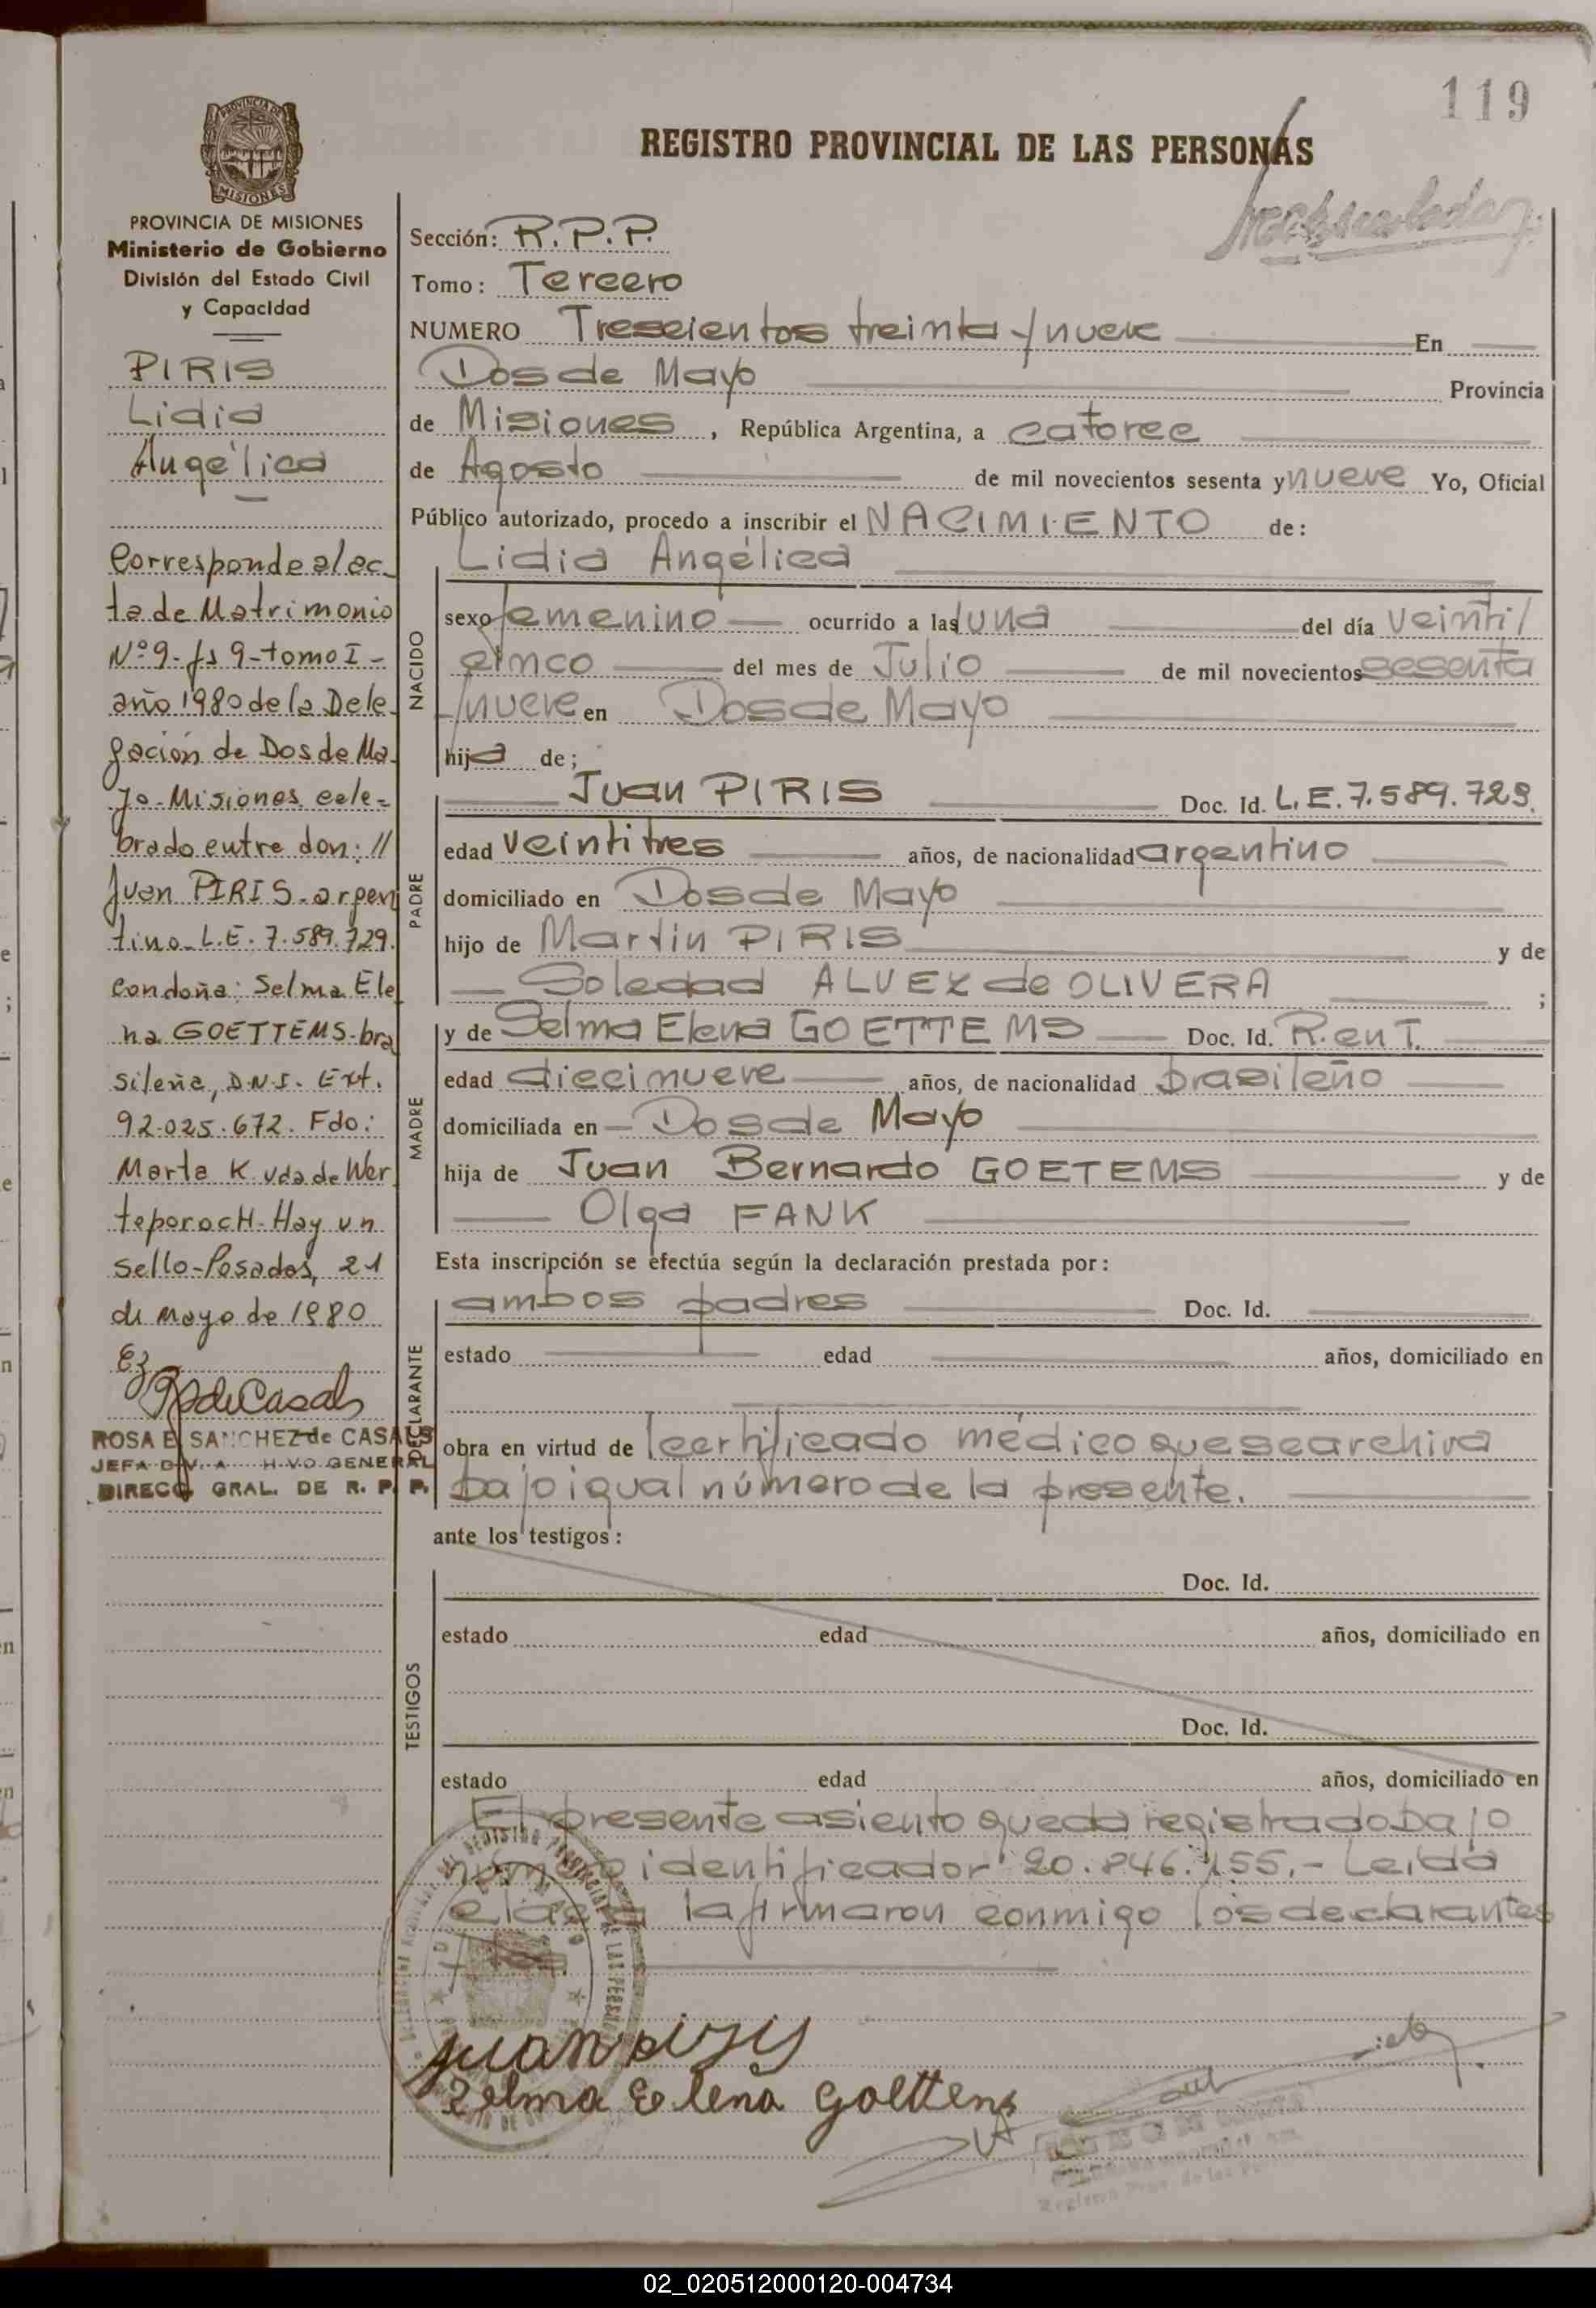 119
REGISTRO PROVINCIAL DE LAS PERSONAS
PROVINCIA DE
MISIONES
PROVINCIA DE MISIONES
Ministerio de Gobierno
División del Estado Civil
y Capacidad
PIRIS
Lidia
Angélica
Corresponde al ac_
ta de Matrimonio
Nº 9- fs 9- tomo I -
año 1980 de la Dele_
gación de Dos de Ma_
yo- Misiones cele=
brado entre don: //
Juan PIRIS- argen
tino- L.E. 7.589.729.
con doña: Selma Ele
na GOETTEMS- bra
sileña, D.N.I. Ext.
92.025.672. Fdo:
Marta K. vda de Wer
teporocH- Hay un
sello- Posadas, 21
de mayo de 1980
ROSA E. SANCHEZ de CASALS
JEFA DIV. A H.VO GENERAL
DIRECC GRAL. DE R. P. P.
Sección: R.P.P.
Tomo: Tercero
NUMERO Trescientos treinta y nueve En
Dos de Mayo Provincia
de Misiones, República Argentina, a catorce
de Agosto de mil novecientos sesenta y nueve Yo, Oficial
Público autorizado, procedo a inscribir el NACIMIENTO de:
Lidia Angélica
NACIDO
sexo femenino ocurrido a las una del día veinti/
cinco del mes de Julio de mil novecientos sesenta
y nueve en Dos de Mayo
hija de;
PADRE
Juan PIRIS Doc. Id. L.E. 7.589.729.
edad veintitres años, de nacionalidad argentino
domiciliado en Dos de Mayo
hijo de Martin PIRIS y de
Soledad ALVEZ de OLIVERA ;
MADRE
y de Selma Elena GOETTEMS Doc. Id. R. en T.
edad diecinueve años, de nacionalidad brasileño
domiciliada en Dos de Mayo
hija de Juan Bernardo GOETEMS y de
Olga FANK
Esta inscripción se efectúa según la declaración prestada por:
DECLARANTE
ambos padres Doc. Id.
estado edad años, domiciliado en
obra en virtud de certificado médico que se archiva
bajo igual número de la presente.
ante los testigos:
TESTIGOS
Doc. Id.
estado edad años, domiciliado en
Doc. Id.
estado edad años, domiciliado en
El presente asiento queda registrado bajo
número identificador 20.846.155,- Leída
el acta la firmaron conmigo los declarantes
juan piris
Zelma Elena Goettens
02_020512000120-004734